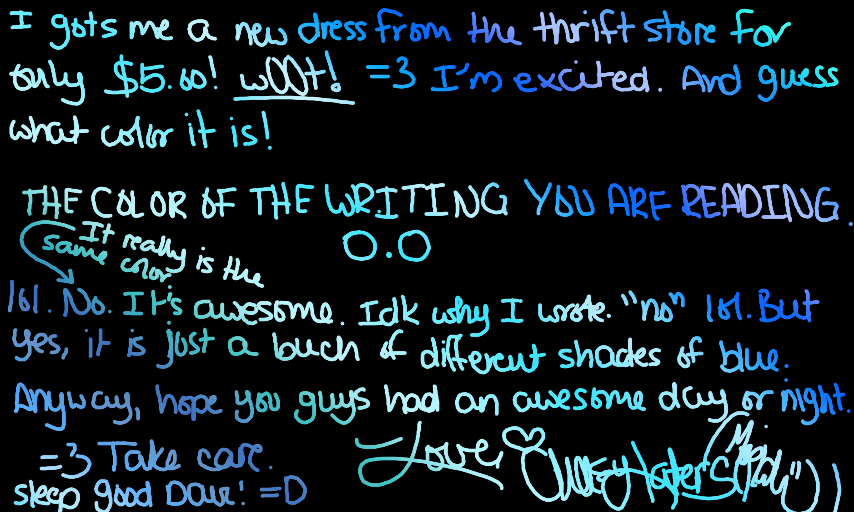 I gots me a new dress from the thrift store for
only $5.00! w00t! =3 I'm excited. And guess
what color it is!
THE COLOR OF THE WRITING YOU ARE READING.
O.O
It really is the
same color
lol. No. It's awesome. Idk why I wrote. "no" lol. But
yes, it is just a buch of different shades of blue.
Anyway, hope you guys had an awesome day or night.
=3 Take care.
Love
sleep good Dave! =D